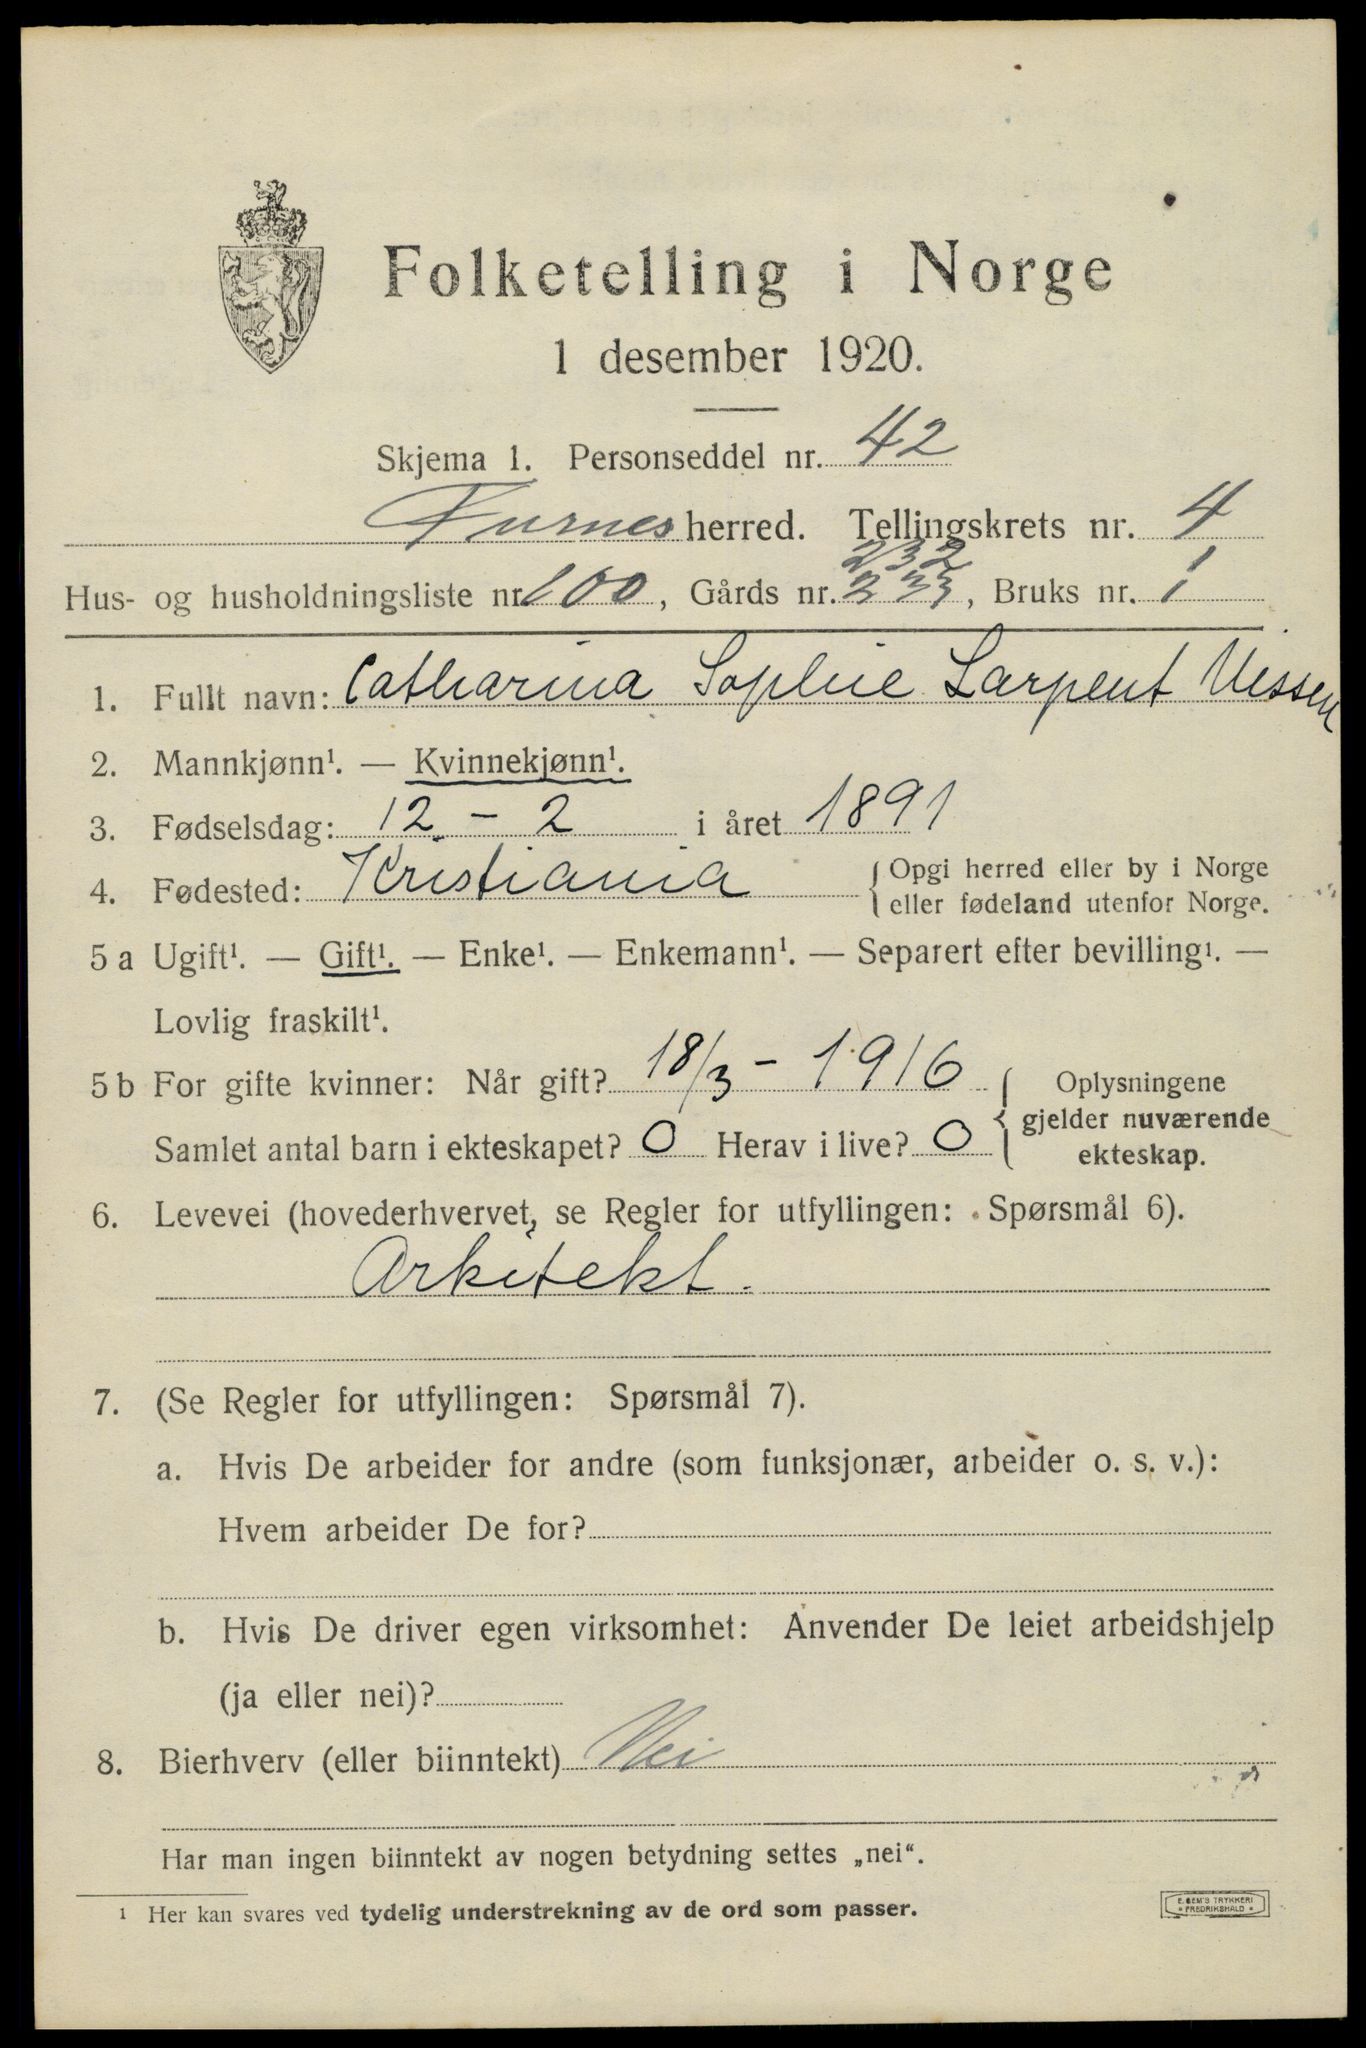 Folketelling i Norge
1 desember 1920.
Skjema 1. Personseddel nr. 42
Furnes herred. Tellingskrets nr. 4
232
Hus- og husholdningsliste nr. 100, Gårds nr. 233, Bruks nr. 1
1. Fullt navn: Catharina Sophie Larpent Nissen
2. Mannkjønn¹. — Kvinnekjønn¹.
3. Fødselsdag: 12 - 2 i året 1891
4. Fødested: Kristiania { Opgi herred eller by i Norge
eller fødeland utenfor Norge.
5 a Ugift¹. — Gift¹. — Enke¹. — Enkemann¹. — Separert efter bevilling¹. —
Lovlig fraskilt¹.
5 b For gifte kvinner: Når gift? 18/3 - 1916 { Oplysningene
Samlet antal barn i ekteskapet? 0 Herav i live? 0 gjelder nuværende
ekteskap.
6. Levevei (hovederhvervet, se Regler for utfyllingen: Spørsmål 6).
Arkitekt.
7. (Se Regler for utfyllingen: Spørsmål 7).
a. Hvis De arbeider for andre (som funksjonær, arbeider o. s. v.):
Hvem arbeider De for?
b. Hvis De driver egen virksomhet: Anvender De leiet arbeidshjelp
(ja eller nei)?
8. Bierhverv (eller biinntekt) Nei
Har man ingen biinntekt av nogen betydning settes „nei“.
¹ Her kan svares ved tydelig understrekning av de ord som passer.
E. SEM'S TRYKKERI
* FREDRIKSHALD *